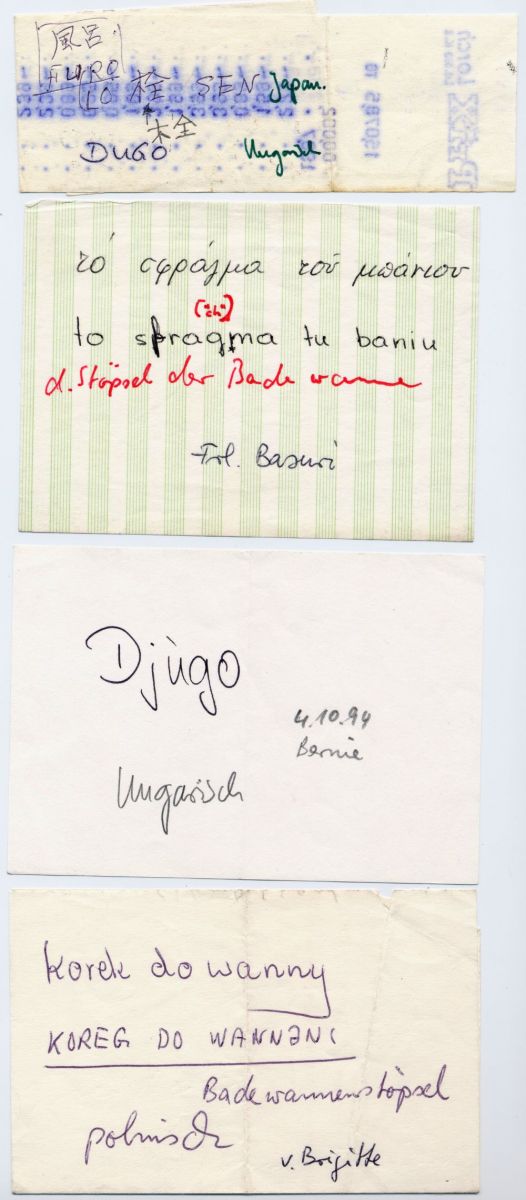 風呂
FURO
栓 SEN Japan.
木全
DUGO Ungarisch
τό σφράγμα τού μπάνιου
("ch")
to sfragma tu baniu
d. Stöpsel der Badewanne
Frl. Basuri
Djùgo
4.10.94
Bernie
Ungarisch
korek do wanny
KOREG DO WANNƏNI
Badewannenstöpsel
polnisch
v. Brigitte